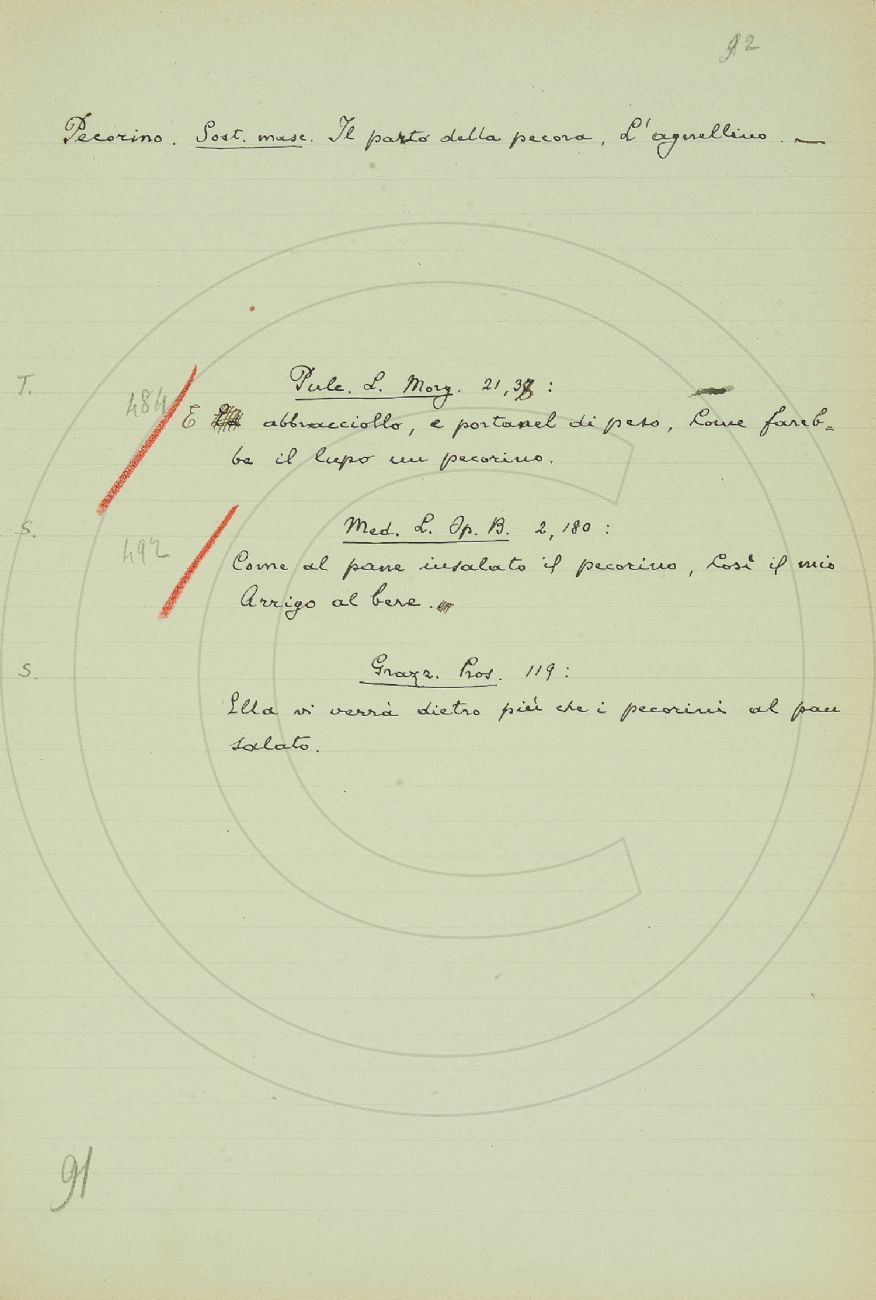 92
Pecorino. Sost. masc. Il parto della pecora, L'agnellino. —
T. 484 Pulc. L. Morg. 21, 38 :
E abbracciollo, e portanel di peso, Come fareb-
be il lupo un pecorino.
S. 492 Med. L. Op. B. 2, 180 :
Come al pane insalato il pecorino, Così il mio
Arrigo al bere.
S. Grazz. Pros. 119 :
Ella vi verrà dietro più che i pecorini al pan
salato.
91